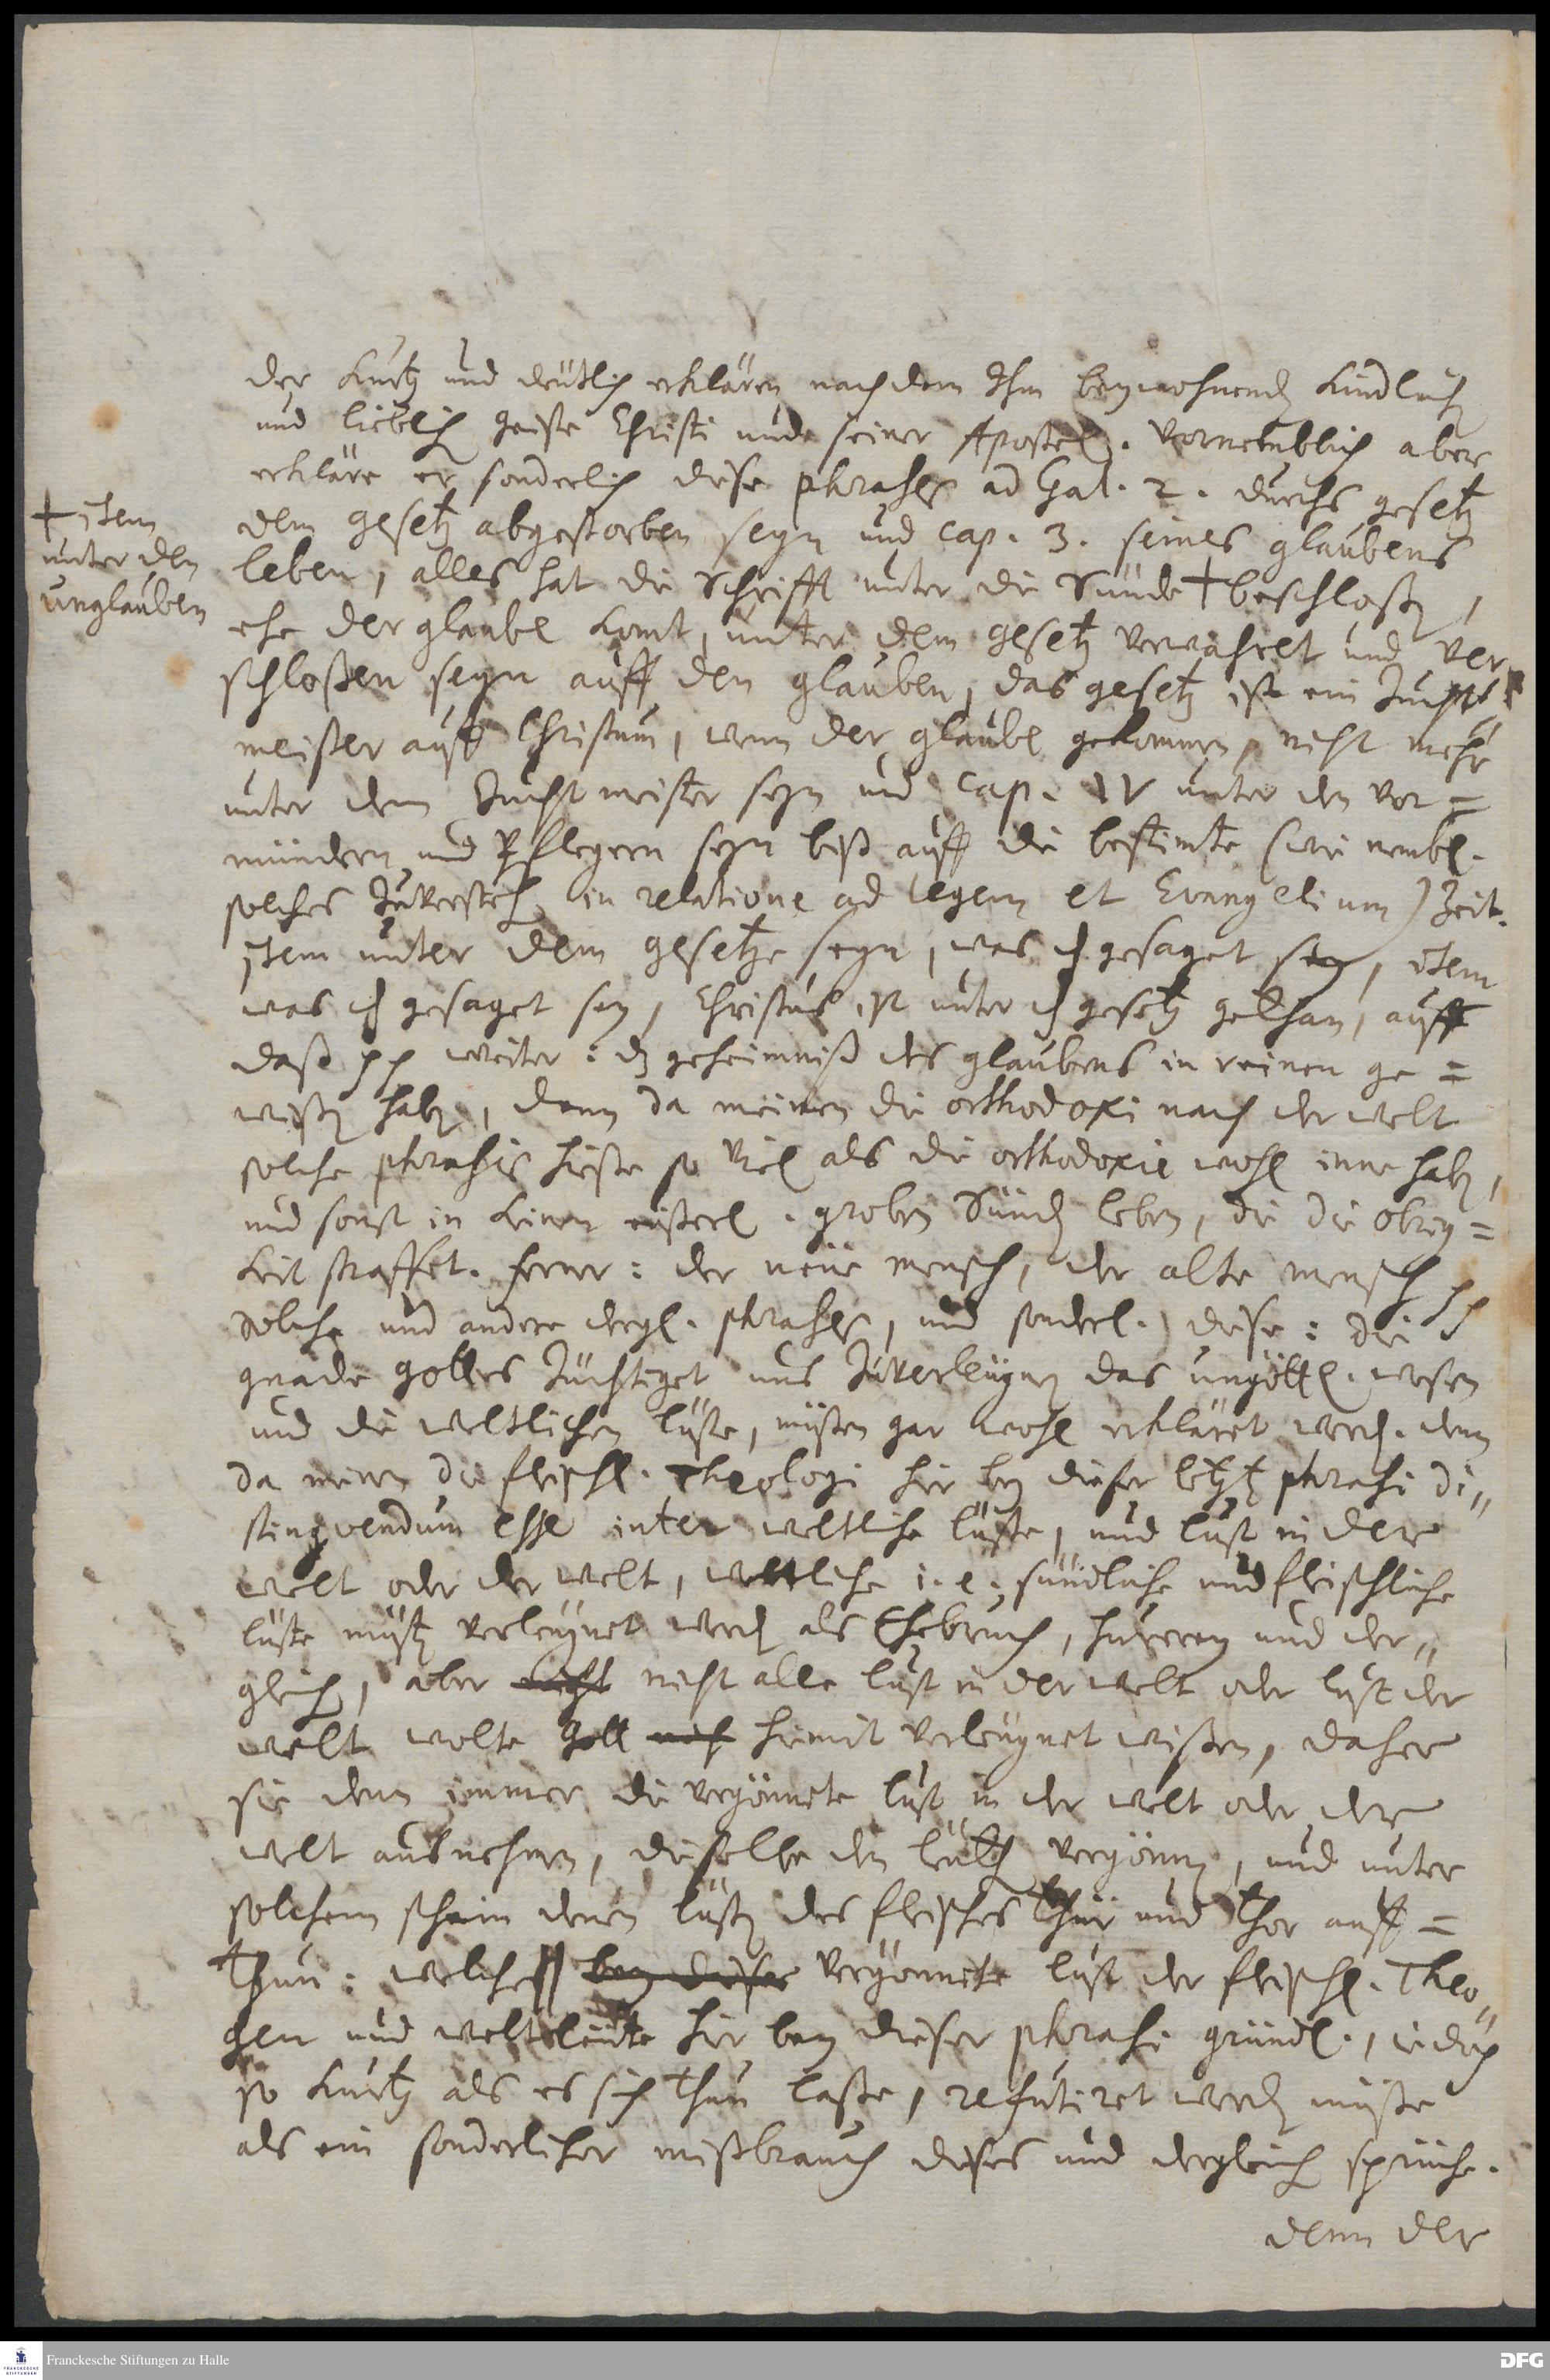 der kurtz und deütlich erklären nach dem Ihm beywohnenden kindlich
und lieblich geiste Christi unde seiner Apostel. Vornemblich aber
erkläre er sonderlich diese phrases ad Gal. 2. durchs gesetz
dem gesetz abgestorben seyn und cap. 3. seines glaubens
+ item
unter den
unglauben
leben, alles hat die Schrifft unter die Sünde + beschloßen,
ehe der glaube komt, unter dem gesetz verwahret und ver
schloßen seyn auff den glauben, das gesetz ist ein Zucht
meister auff Christum, wenn der glaube gekommen, nicht mehr
unter dem Zuchtmeister seyn und cap. IV unter den Vor=
mündern und Pflegern seyn biß auff die bestimte (wie nembl.
solches Zuverstehen in relatione ad legem et Evangelium) Zeit.
item unter dem gesetze seyn, was das gesaget sey, item
was das gesaget sey, Christus ist unter das gesetz gethan, auff
daß pp weiter: das geheimniß des glaubens in reinen ge=
wißen haben, denn da meinen die orthodoxi nach der welt
solche phrasis hieße so viel als die orthodoxie wohl inne haben,
und sonst in keinen eußerl. groben Sünden leben, die die obrig=
keit straffet. ferner: der neüe mensch, der alte mensch pp
solche und andere dergl. phrases, und sonderl. diese: die
gnade gottes Züchtiget uns Zuverleügnen das ungöttl. wesen
und die weltlichen lüste, müßen gar wohl erkläret werden. denn
da meinen die fleischl. Theologi hier bey dieser letzten phrasi di"
stinqvendum esse inter weltliche lüste, und lust in der
welt oder der welt, weltliche i. e. sündliche und fleischliche
lüste müsten verleugnet werden als Ehebruch, hurerey und der"
gleichen, aber nicht nicht alle lust in der welt oder lust der
welt wolte Gott nich hiemit verleugnet wißen, daher
sie denn immer die vergönnete lust in der welt oder der
welt ausnehmen, dieselbe den leüthen vergönnen, und unter
solchem schein denen lüsten des fleisches Thür und Thor auff=
thun: welche bey dieser vergönnete lust der fleischl. Theo"
gen und weltleüte hier bey dieser phrasi gründl., iedoch
so kurtz als es sich thun laße, refutiret werden müste
als ein sonderlicher mißbrauch dieses und dergleichen sprüche.
denn der
Franckesche Stiftungen zu Halle
DFG